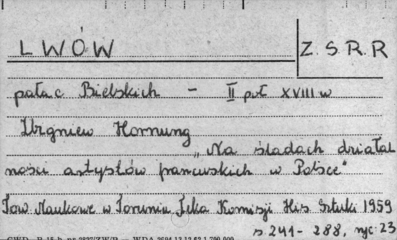 LWÓW Z.S.R.R
pałac Bielskich - II poł XVIII w
Zbigniew Hornung
„Na śladach działal
ności artystów francuskich w Polsce"
Tow. Naukowe w Toruniu Teka Komisji His Sztuki 1959
s 241-288, ryc 23